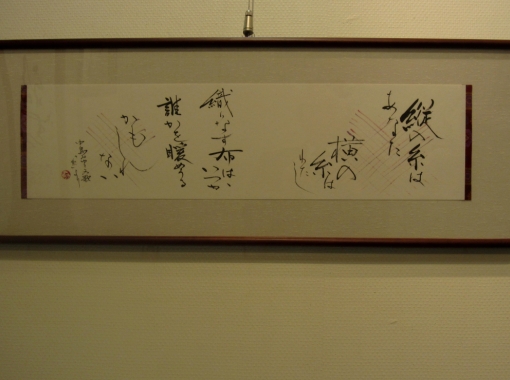 縦の糸は
あなた
横の
糸は
わたし
織りなす布は、
いつか
誰かを暖める
かもしれ
ない